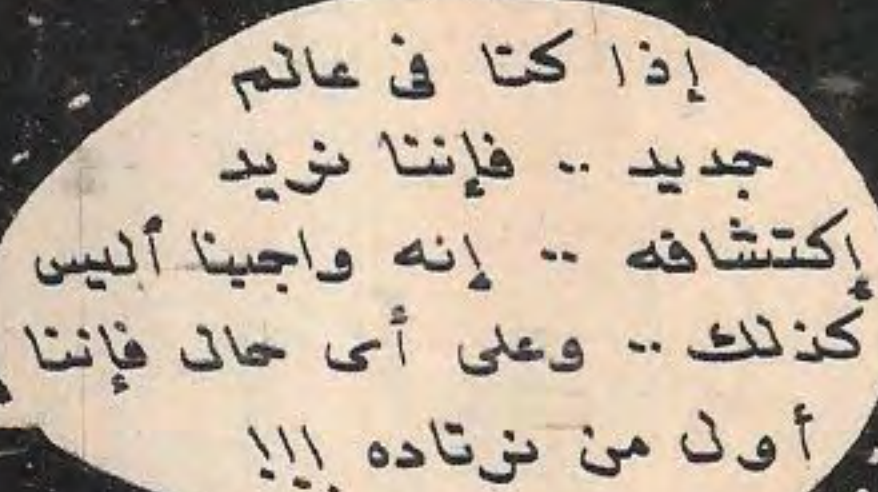 إذا كنا فى عالم
جديد .. فإننا نريد
إكتشافه .. إنه واجبنا أليس
كذلك .. وعلى أى حال فإننا
أول من نرتاده !!!